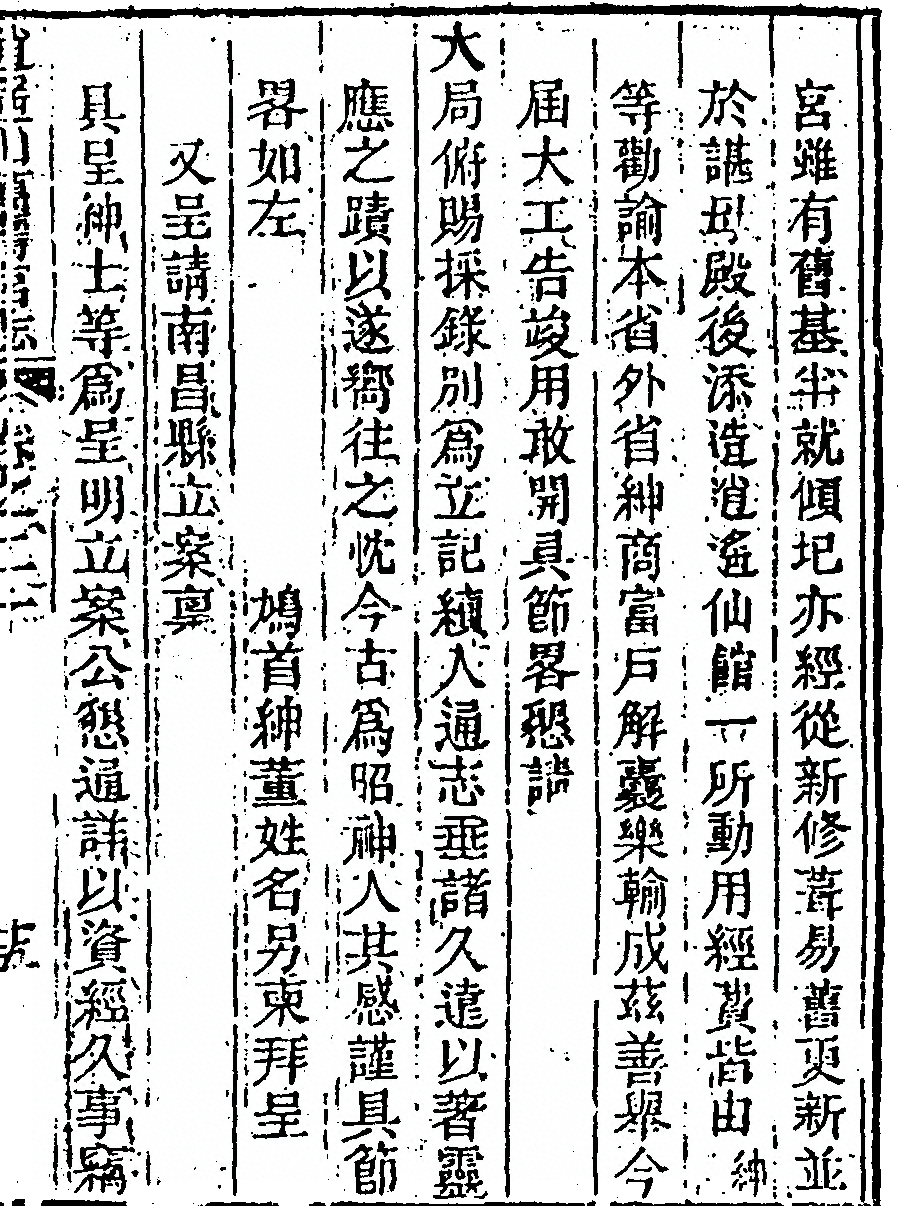 宮雖有舊基半就傾圮亦經從新修葺易舊更新並
於諶母殿後添造逍遙仙館一所動用經費皆由紳
等勸諭本省外省紳商富戶解囊樂輸成茲善舉今
届大工告竣用敢開具節畧懇請
大局俯賜採錄別爲立記續入通志垂諸久遠以著靈
應之蹟以遂嚮往之忱今古爲昭神人其感謹具節
畧如左　鳩首紳董姓名另柬拜呈
又呈請南昌縣立案稟
具呈紳士等爲呈明立案公懇通詳以資經久事竊